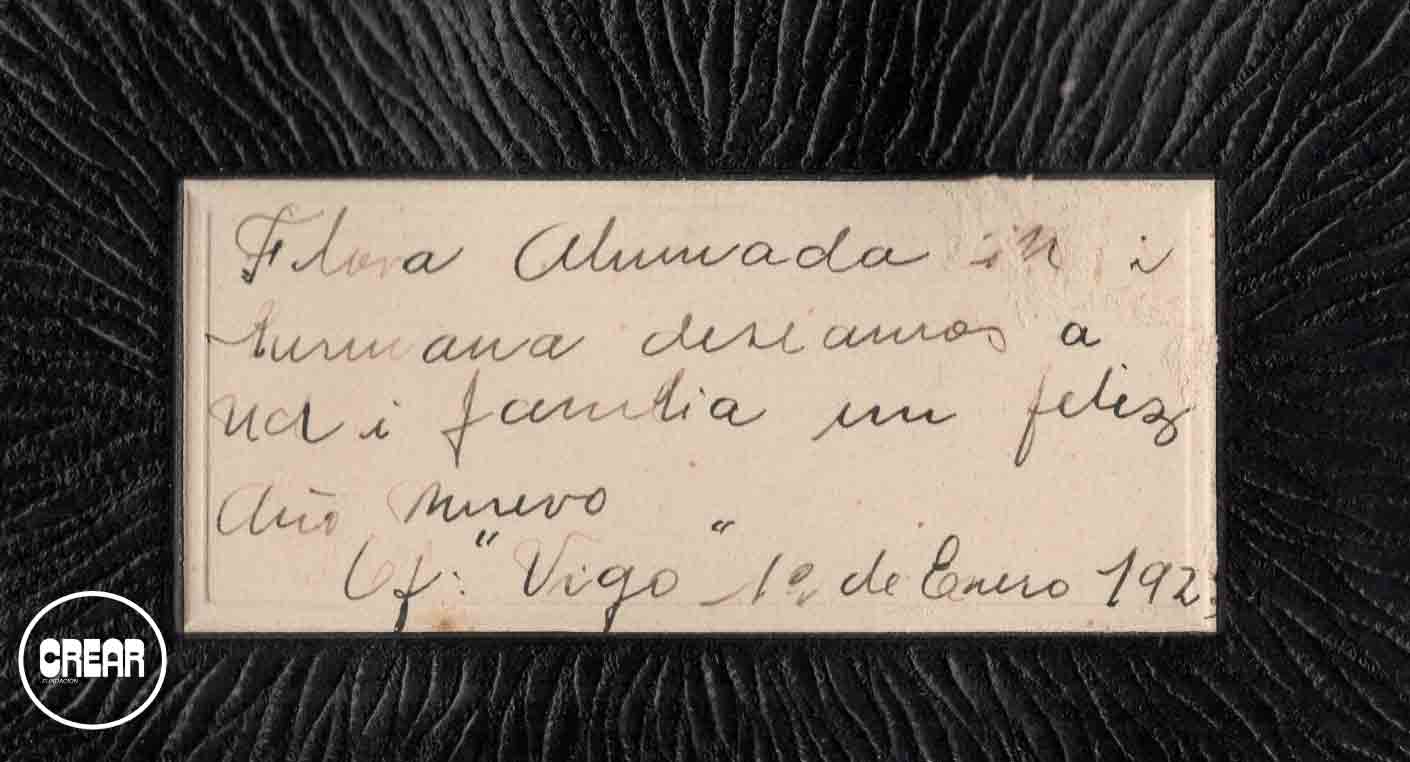 Flora Ahumada i
hermana deseamos a
Ud i familia un feliz
Año nuevo
Of: "Vigo" 1º de Enero 192
CREAR
FUNDACION